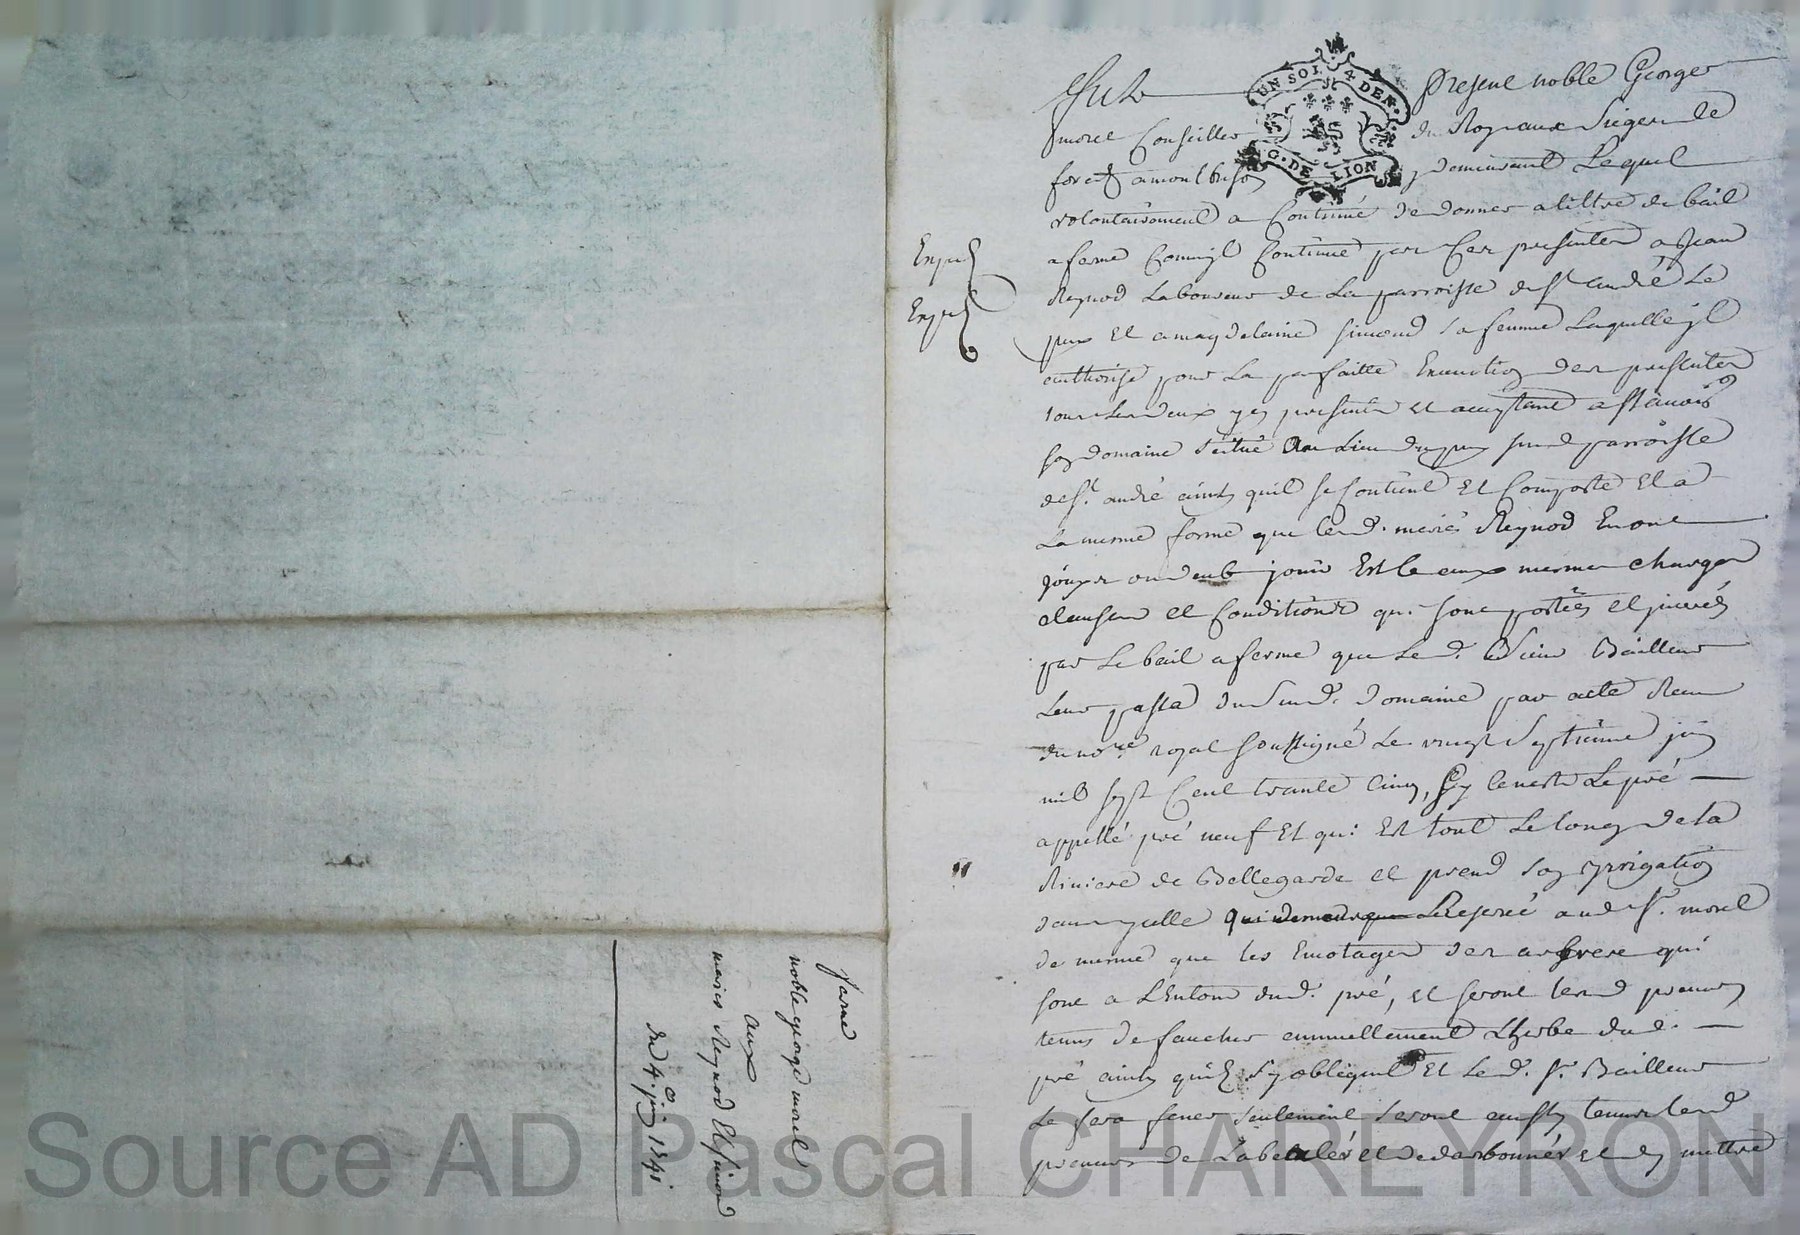 UN SOL 4 DEN.
G. DE LION
Fut Present noble George
morel Conseiller du Roy aux Sieges de
forest a montbrison y demeurant Lequel
volontairement a Continué de donner a tiltre de bail
a ferme Comme jl Continue par Ces presentes a Jean
Reynod Laboureur de La parroisse de St. andré Le
puy Et a magdelaine simond sa femme Laquelle jl
authorise pour La parfaitte Execution des presentes
tous Les deux jcy presents et acceptant assavoir
son domaine situé Au Lieu du puy susd parroisse
de St. andré ainsy quil se Contient Et Comporte Et a
La mesme forme que lesd. mariés Reynod En ont
joüy ou deub jouir Est Ce aux mesmes charges
clauses et Conditions qui sont portées et
par Le bail a ferme que Led. Sieur Bailleur
Leur passa du susd. domaine par acte Receu
du nore. royal soussigné Le vingt septieme juin
mil sept Cent trante Cinq, sy Ce nest Le pré
appellé pré neuf Et qui Est tout Le long de la
Riviere de Bellegarde et prend son yrrigation
dans jcelle qui demeure Reservé aud Sr. morel
de mesme que les Emotages des arbres qui
sont a Lentour dud. pré, et seront lesd preneurs
tenus de faucher annuellement Lherbe dud.
pré ainsy quils sy obligent Et Led. Sr. Bailleur
Le fera fener seulement seront aussy tenus lesd
preneurs de et de et dy mettre
Enjud
Enjud
ferme
noble george morel
aux
mariés Reynod Et simond
du 4e. juin 1741
Source AD Pascal CHAREYRON